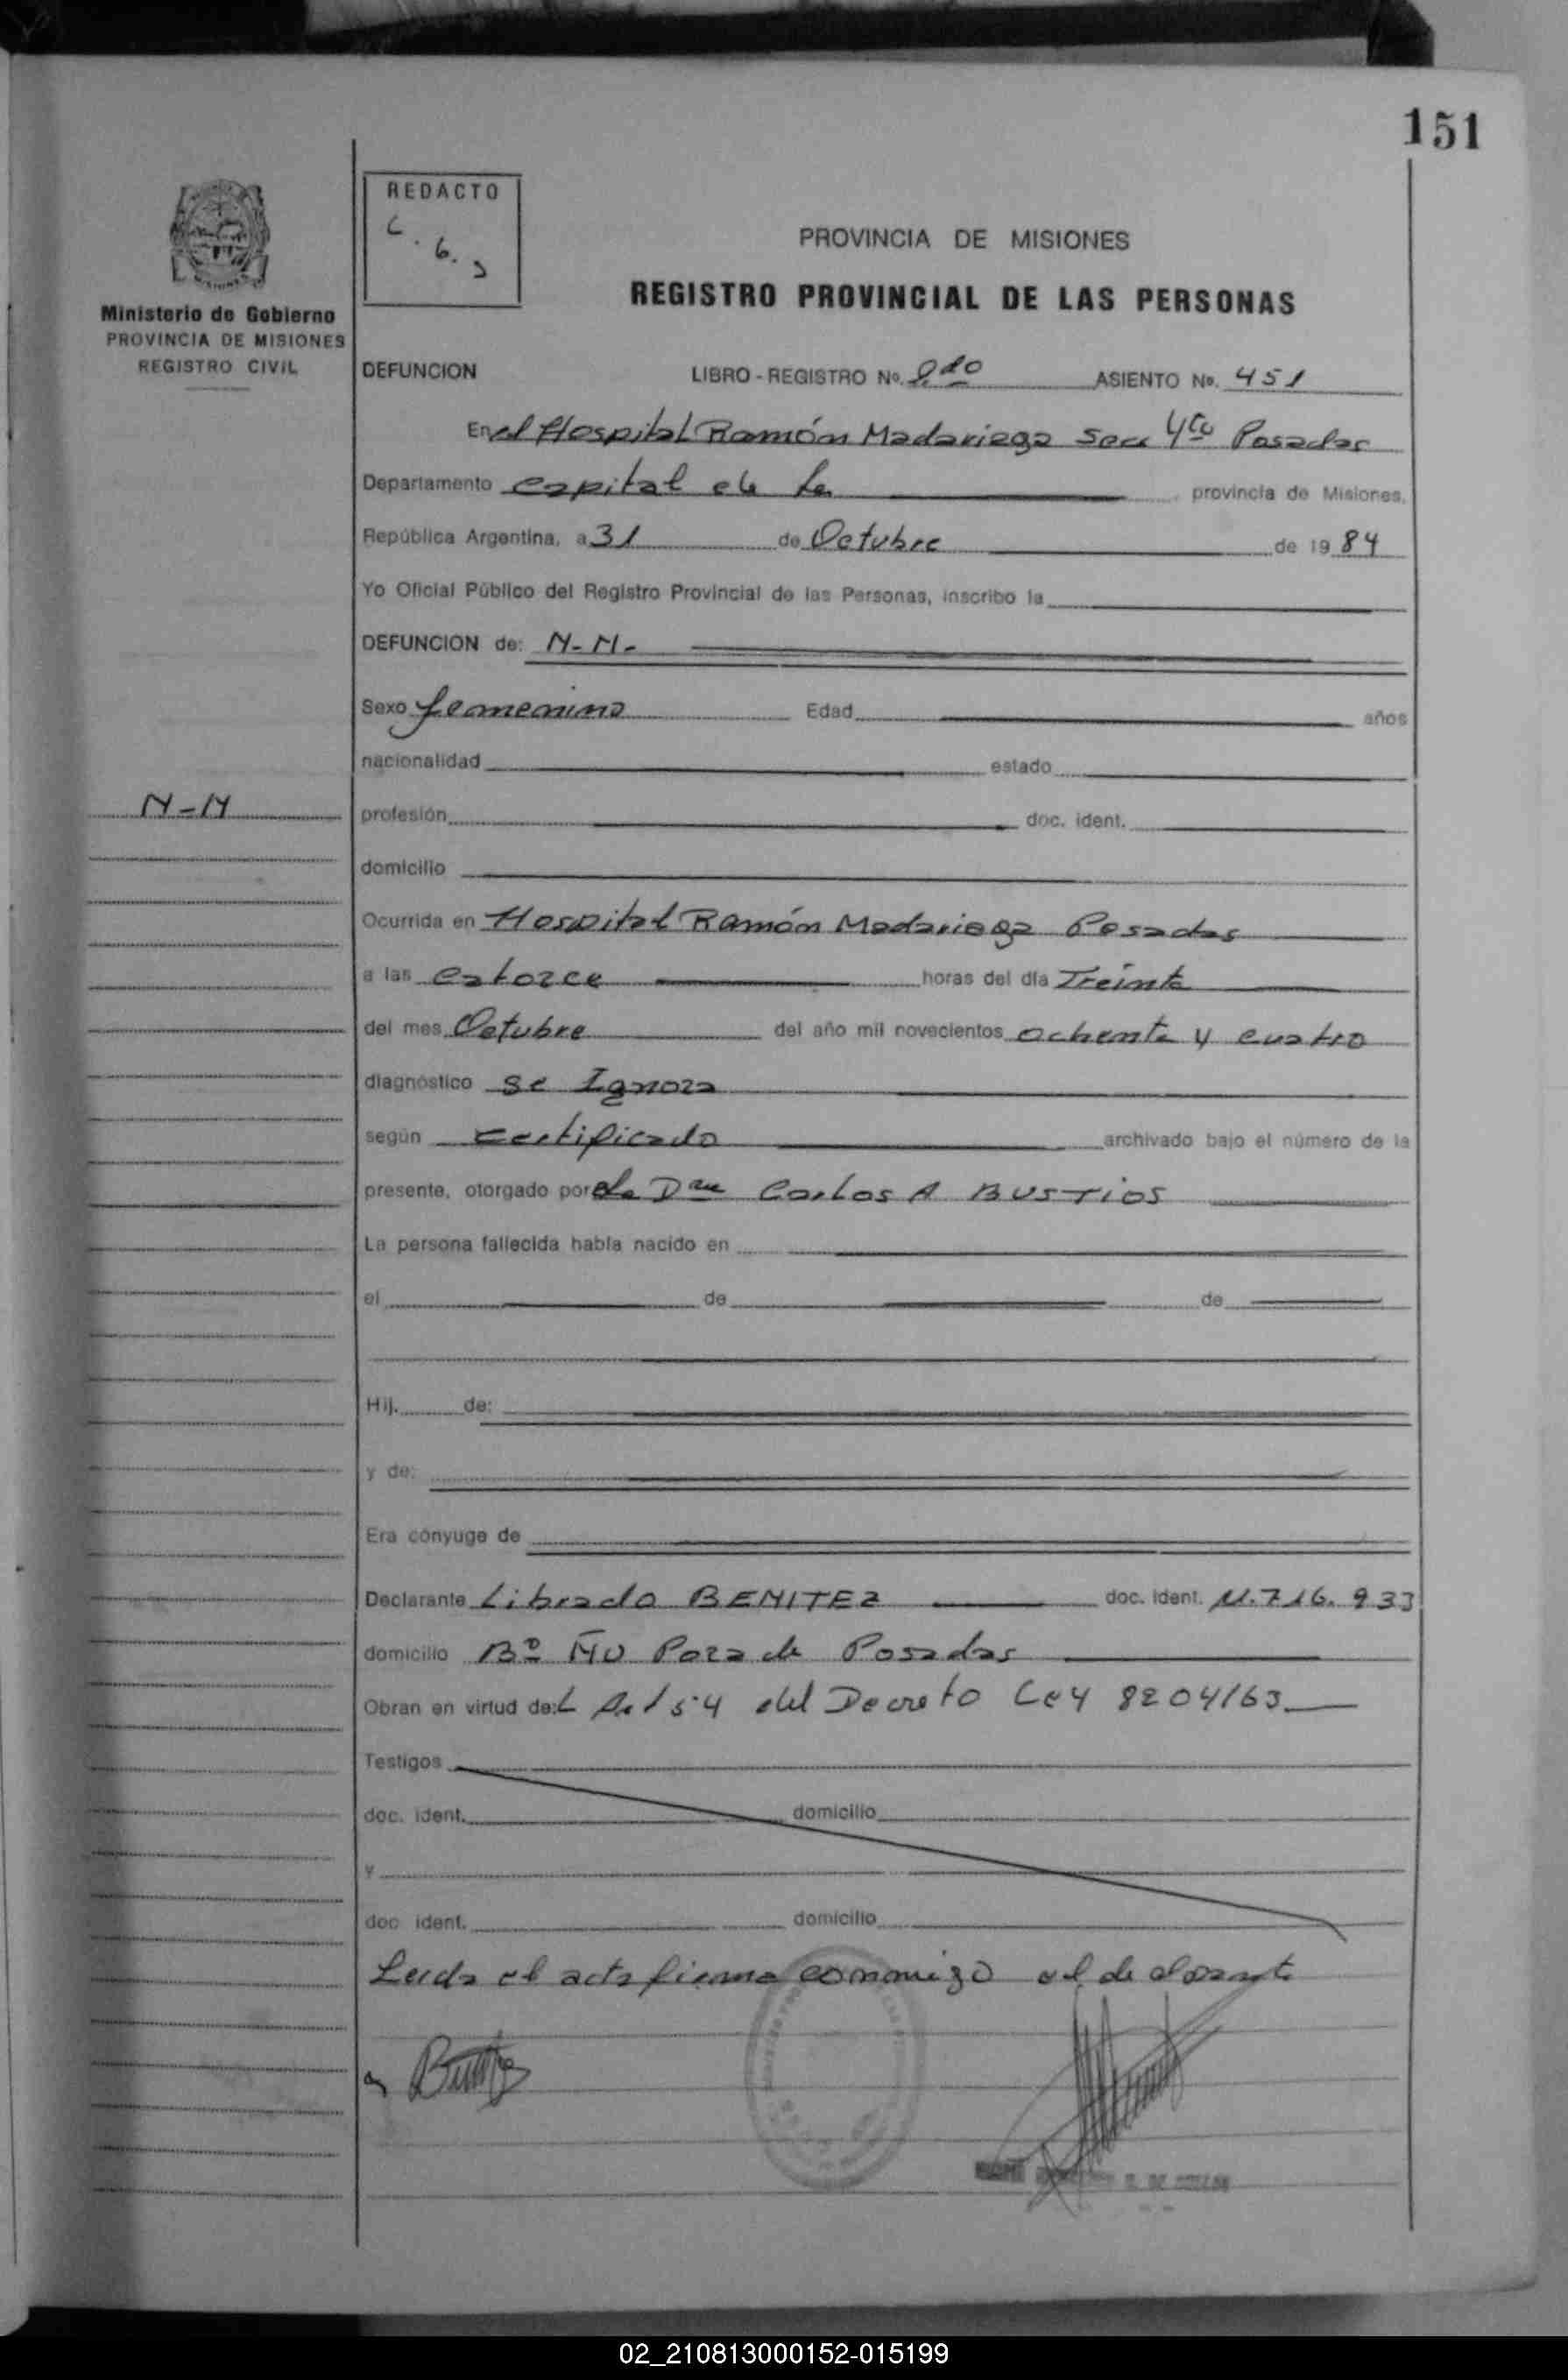 151
REDACTO
C. G. J
PROVINCIA DE MISIONES
REGISTRO PROVINCIAL DE LAS PERSONAS
Ministerio de Gobierno
PROVINCIA DE MISIONES
REGISTRO CIVIL
DEFUNCION LIBRO - REGISTRO No. 2do ASIENTO No. 451
En el Hospital Ramón Madariaga Secc 4ta Posadas
Departamento Capital de la provincia de Misiones,
República Argentina, a 31 de Octubre de 1984
Yo Oficial Público del Registro Provincial de las Personas, inscribo la
DEFUNCION de: N-N-
Sexo femenino Edad años
nacionalidad estado
N-N
profesión doc. ident.
domicilio
Ocurrida en Hospital Ramón Madariaga Posadas
a las catorce horas del día Treinta
del mes Octubre del año mil novecientos ochenta y cuatro
diagnóstico se Ignora
según certificado archivado bajo el número de la
presente, otorgado por Carlos A BUSTIOS
La persona fallecida había nacido en
el de de
Hij. de:
y de:
Era cónyuge de
Declarante Librado BENITEZ doc. ident. 11.716.933
domicilio Bº ÑU Pora de Posadas
Obran en virtud de:L Art 54 del Decreto Ley 8204/63
Testigos
doc. ident. domicilio
y
doc. ident. domicilio
Leida el acta firma conmigo el declarante
02_210813000152-015199